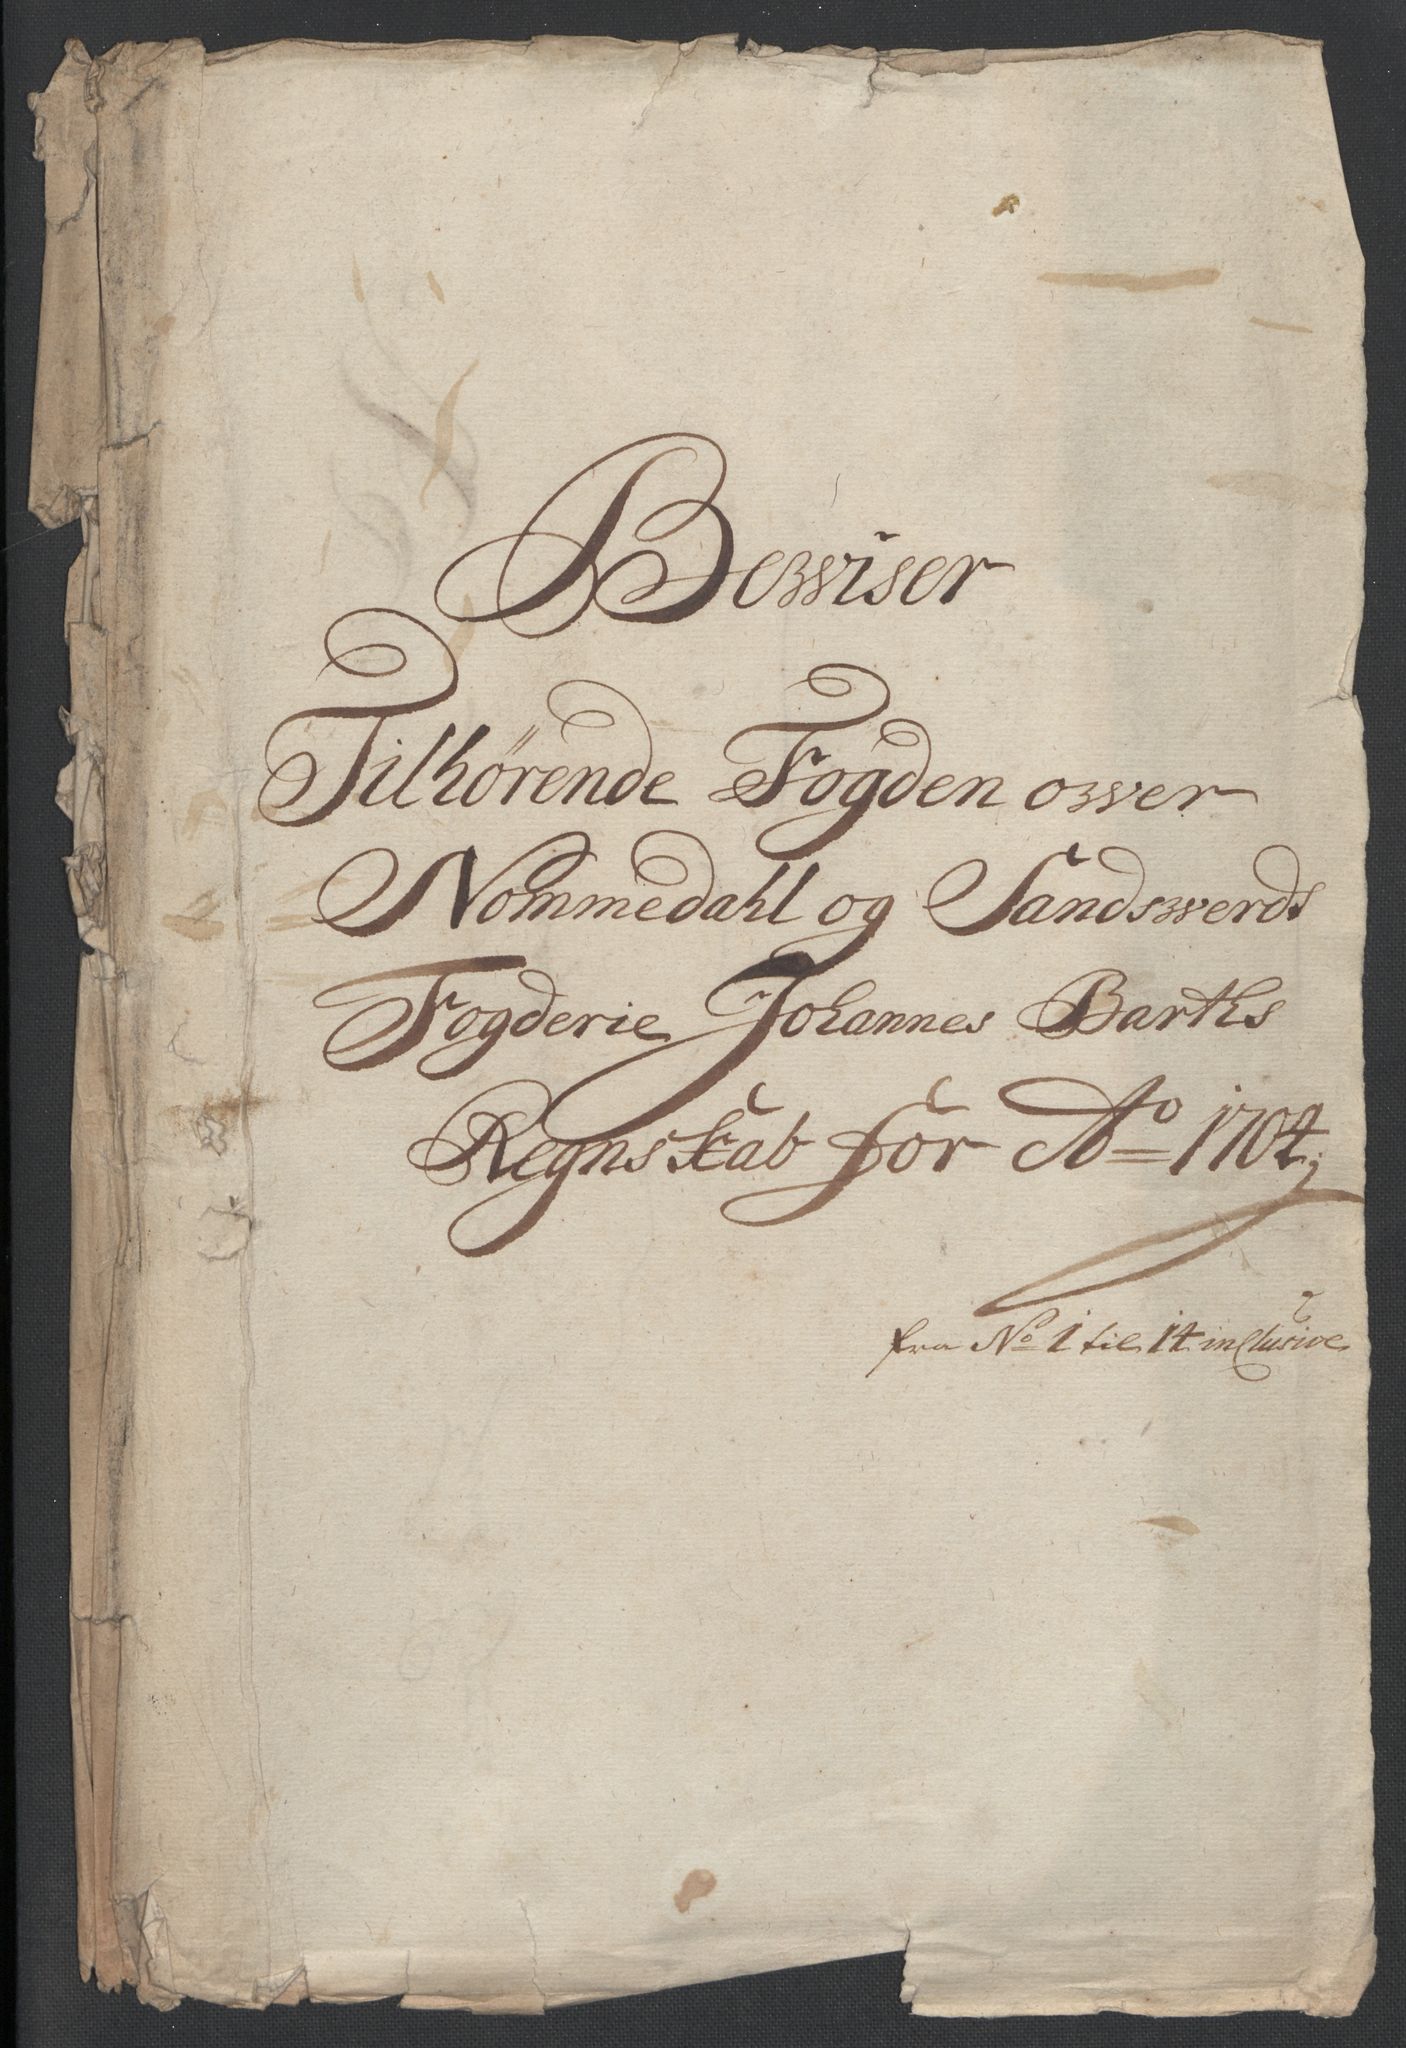 Bewiser
Tilhørende Fogden ower
Nommedahl og Sandswerds
Fogderie Johannes Barths
Regnskab for Ao 1704,
fra No 1 til 14 inclusive